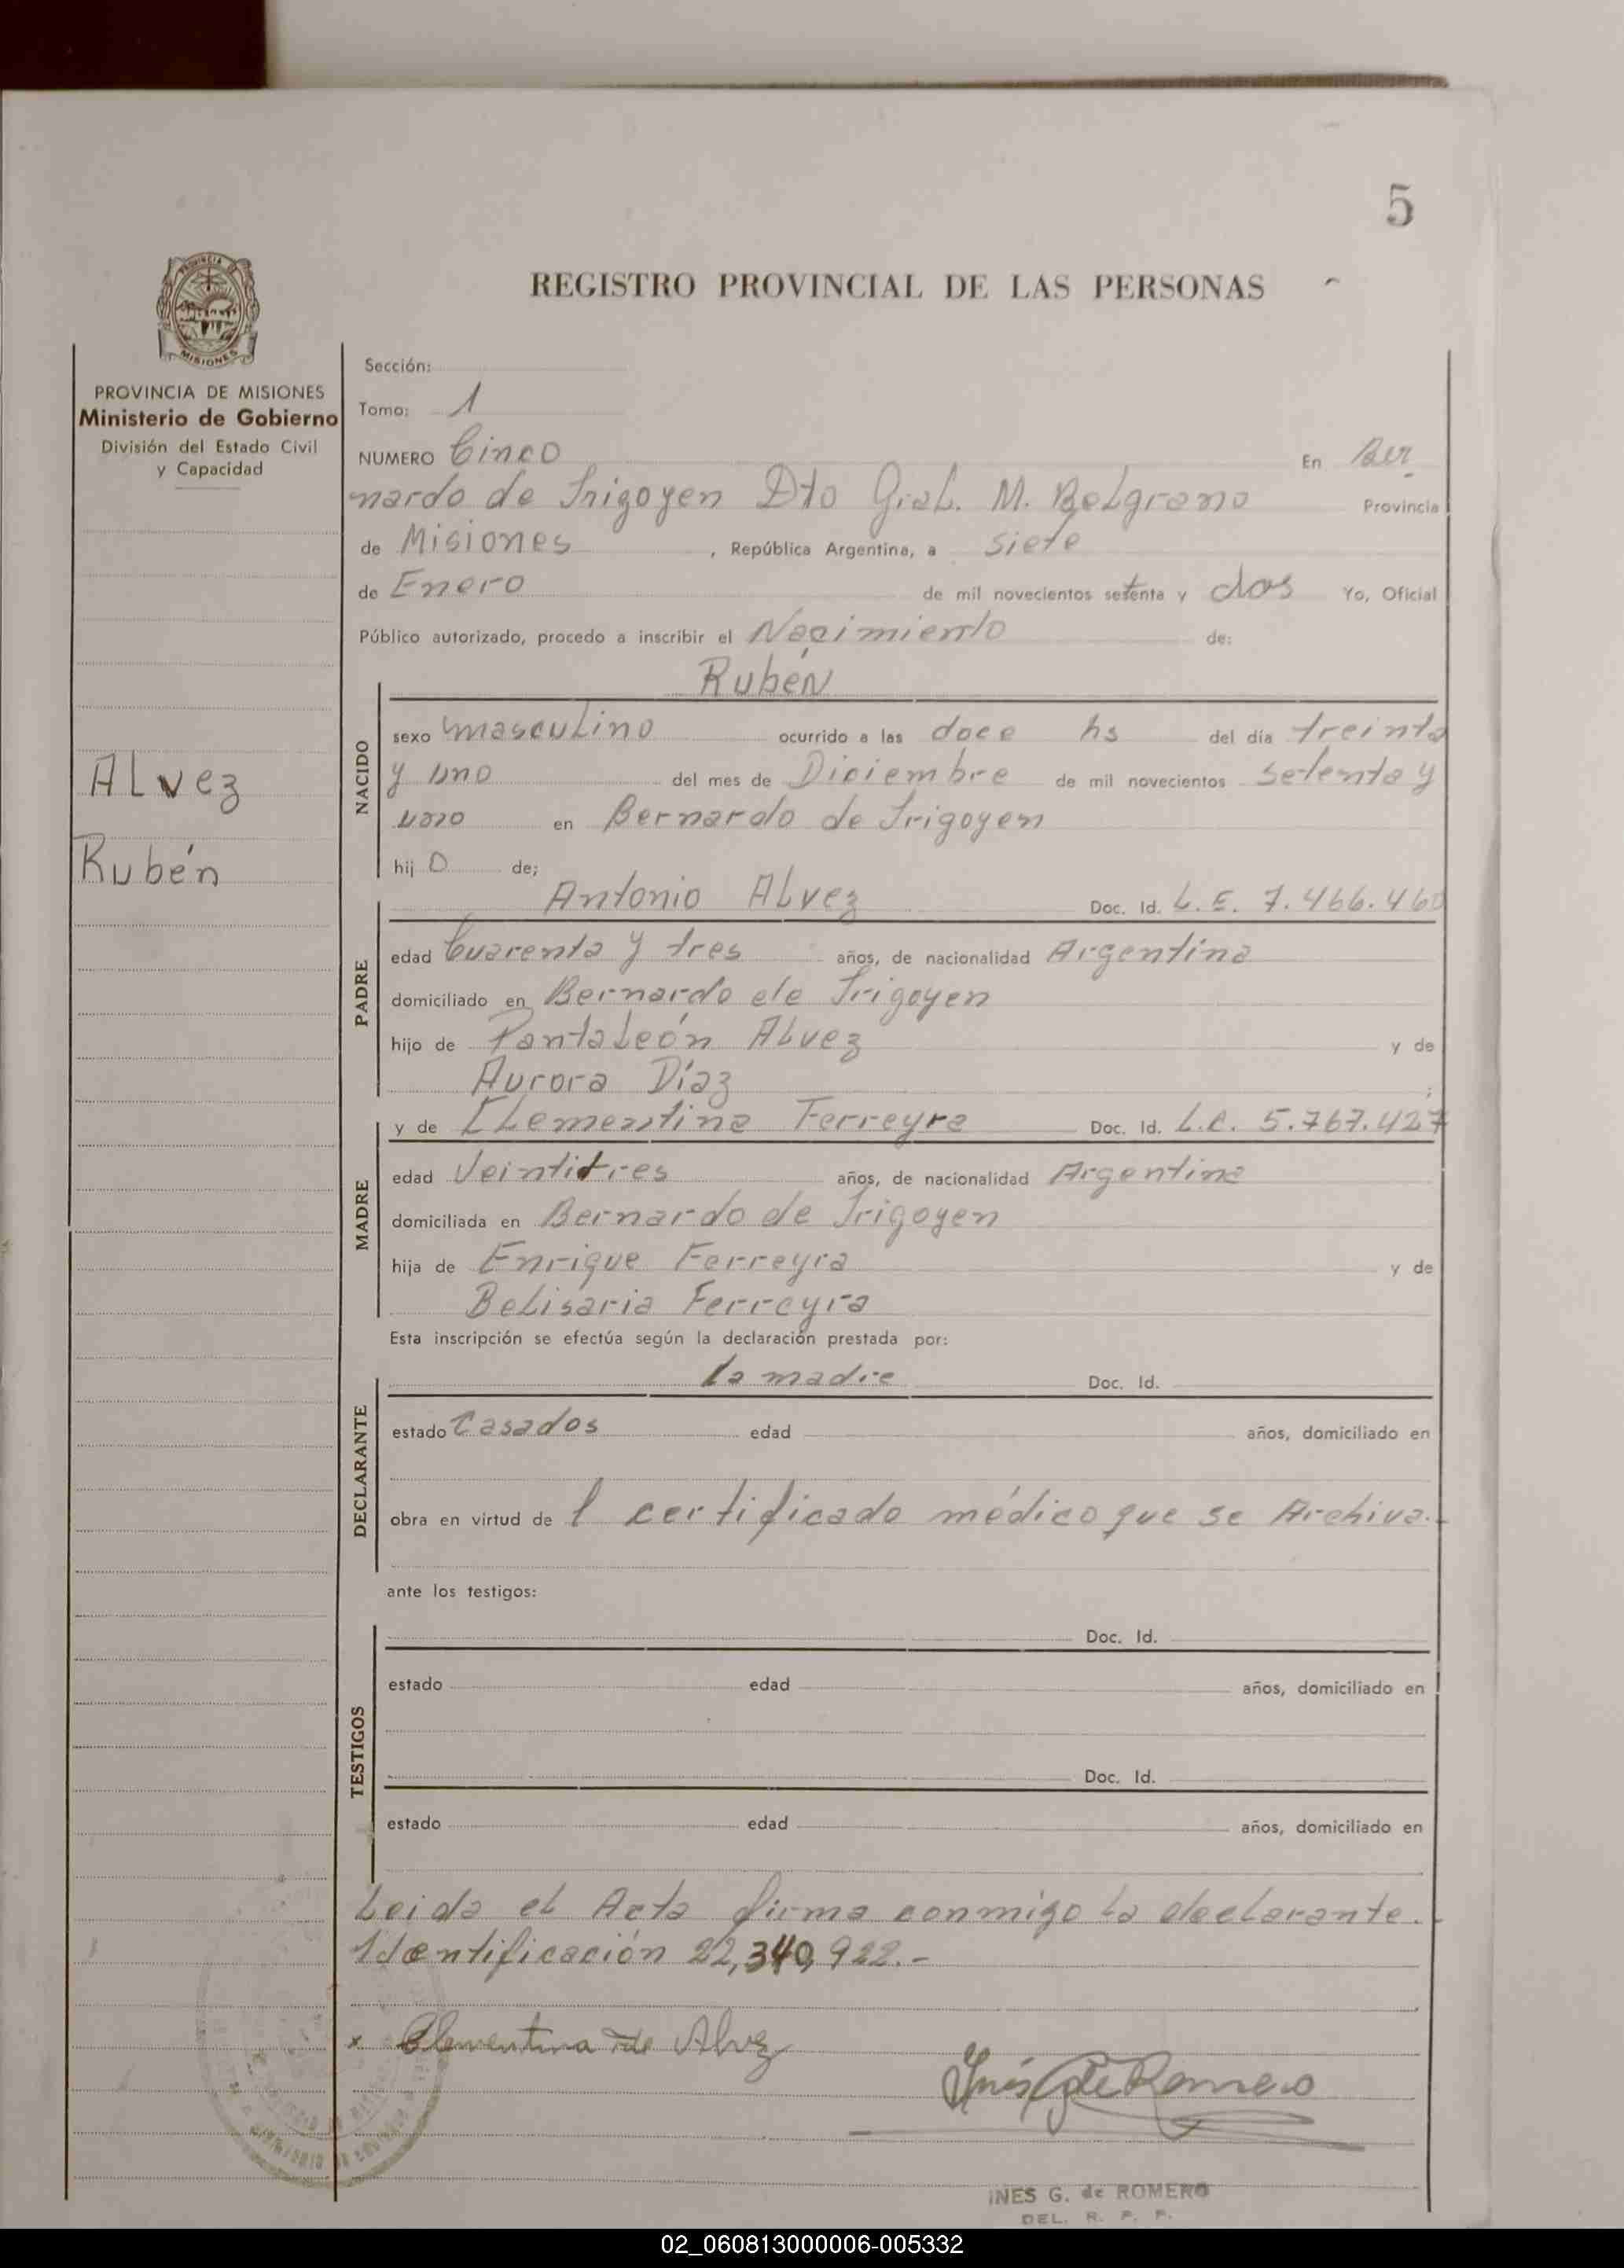 5
REGISTRO PROVINCIAL DE LAS PERSONAS
PROVINCIA DE MISIONES
Ministerio de Gobierno
División del Estado Civil
y Capacidad
Alvez
Rubén
Sección:
Tomo: 1
NUMERO Cinco En Ber
nardo de Irigoyen Dto Gral. M. Belgrano Provincia
de Misiones, República Argentina, a siete
de Enero de mil novecientos setenta y dos Yo, Oficial
Público autorizado, procedo a inscribir el Nacimiento de:
Rubén
NACIDO
sexo masculino ocurrido a las doce hs del día treinta
y uno del mes de Diciembre de mil novecientos setenta y
uno en Bernardo de Irigoyen
hijo de;
Antonio Alvez Doc. Id. L.E. 7.466.460
PADRE
edad Cuarenta y tres años, de nacionalidad Argentina
domiciliado en Bernardo de Irigoyen
hijo de Pantaleón Alvez y de
Aurora Díaz ;
y de Clementina Ferreyra Doc. Id. L.C. 5.767.427
MADRE
edad Veintitres años, de nacionalidad Argentina
domiciliada en Bernardo de Irigoyen
hija de Enrique Ferreyra y de
Belisaria Ferreyra
Esta inscripción se efectúa según la declaración prestada por:
la madre Doc. Id.
DECLARANTE
estado Casados edad años, domiciliado en
obra en virtud de l certificado médico que se Archiva.-
ante los testigos:
TESTIGOS
Doc. Id.
estado edad años, domiciliado en
Doc. Id.
estado edad años, domiciliado en
Leida el Acta firma conmigo la declarante.-
Identificación 22,340,922.-
x Clementina de Alvez
Inés G de Romero
INES G. de ROMERO
DEL. R. P. P.
02_060813000006-005332